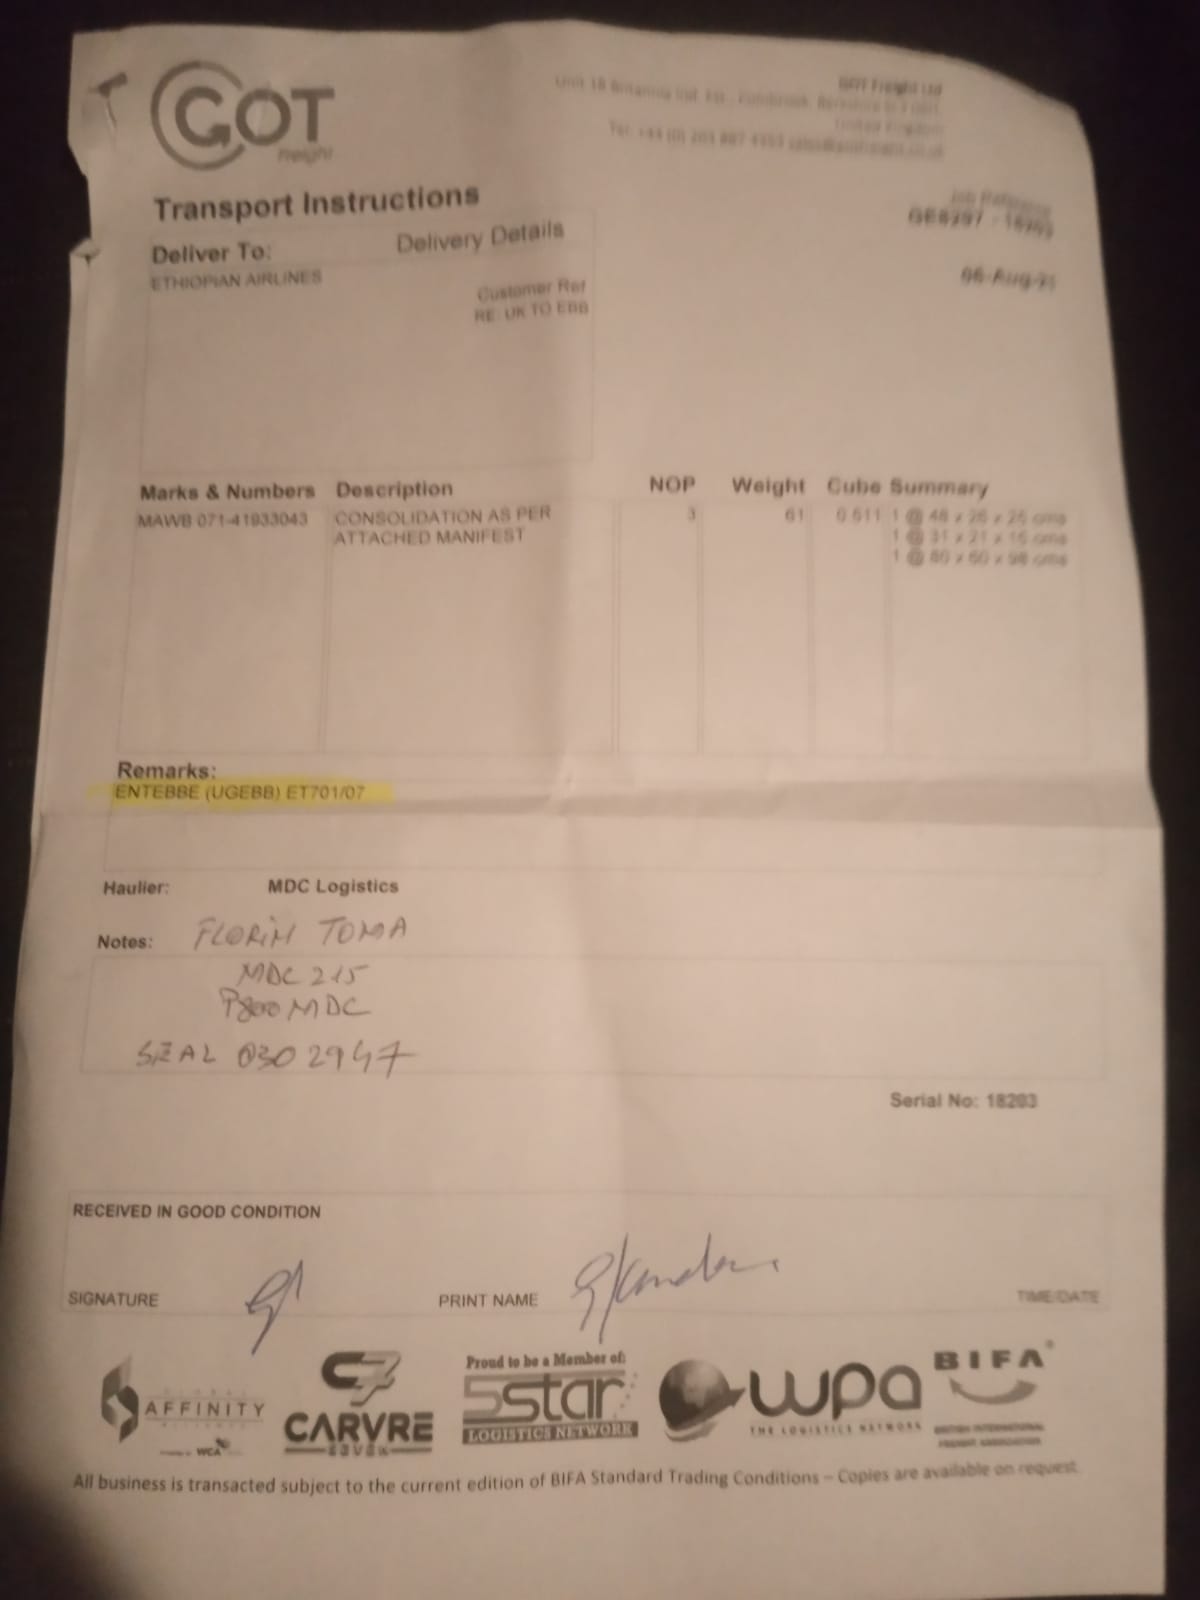 GOT
Freight
GOT Freight Ltd
United Kingdom
Transport Instructions
Deliver To:
Delivery Details
ETHIOPIAN AIRLINES
Customer Ref
RE: UK TO EBB
Job Reference
06-Aug-21
Marks & Numbers Description NOP Weight Cube Summary
MAWB 071-41933043 CONSOLIDATION AS PER 3 61 0.511 1 @ 48 x 26 x 26 cms
ATTACHED MANIFEST 1 @ 31 x 21 x 16 cms
1 @ 80 x 60 x 98 cms
Remarks:
ENTEBBE (UGEBB) ET701/07
Haulier: MDC Logistics
Notes: FLORIN TOMA
MDC 215
P800MDC
SEAL 0302947
Serial No: 18203
RECEIVED IN GOOD CONDITION
SIGNATURE
PRINT NAME
TIME/DATE
AFFINITY
WCA
C7
CARVRE
SEVEN
Proud to be a Member of:
5star
LOGISTICS NETWORK
wpa
THE LOGISTICS NETWORK
BIFA
BRITISH INTERNATIONAL
FREIGHT ASSOCIATION
All business is transacted subject to the current edition of BIFA Standard Trading Conditions – Copies are available on request.